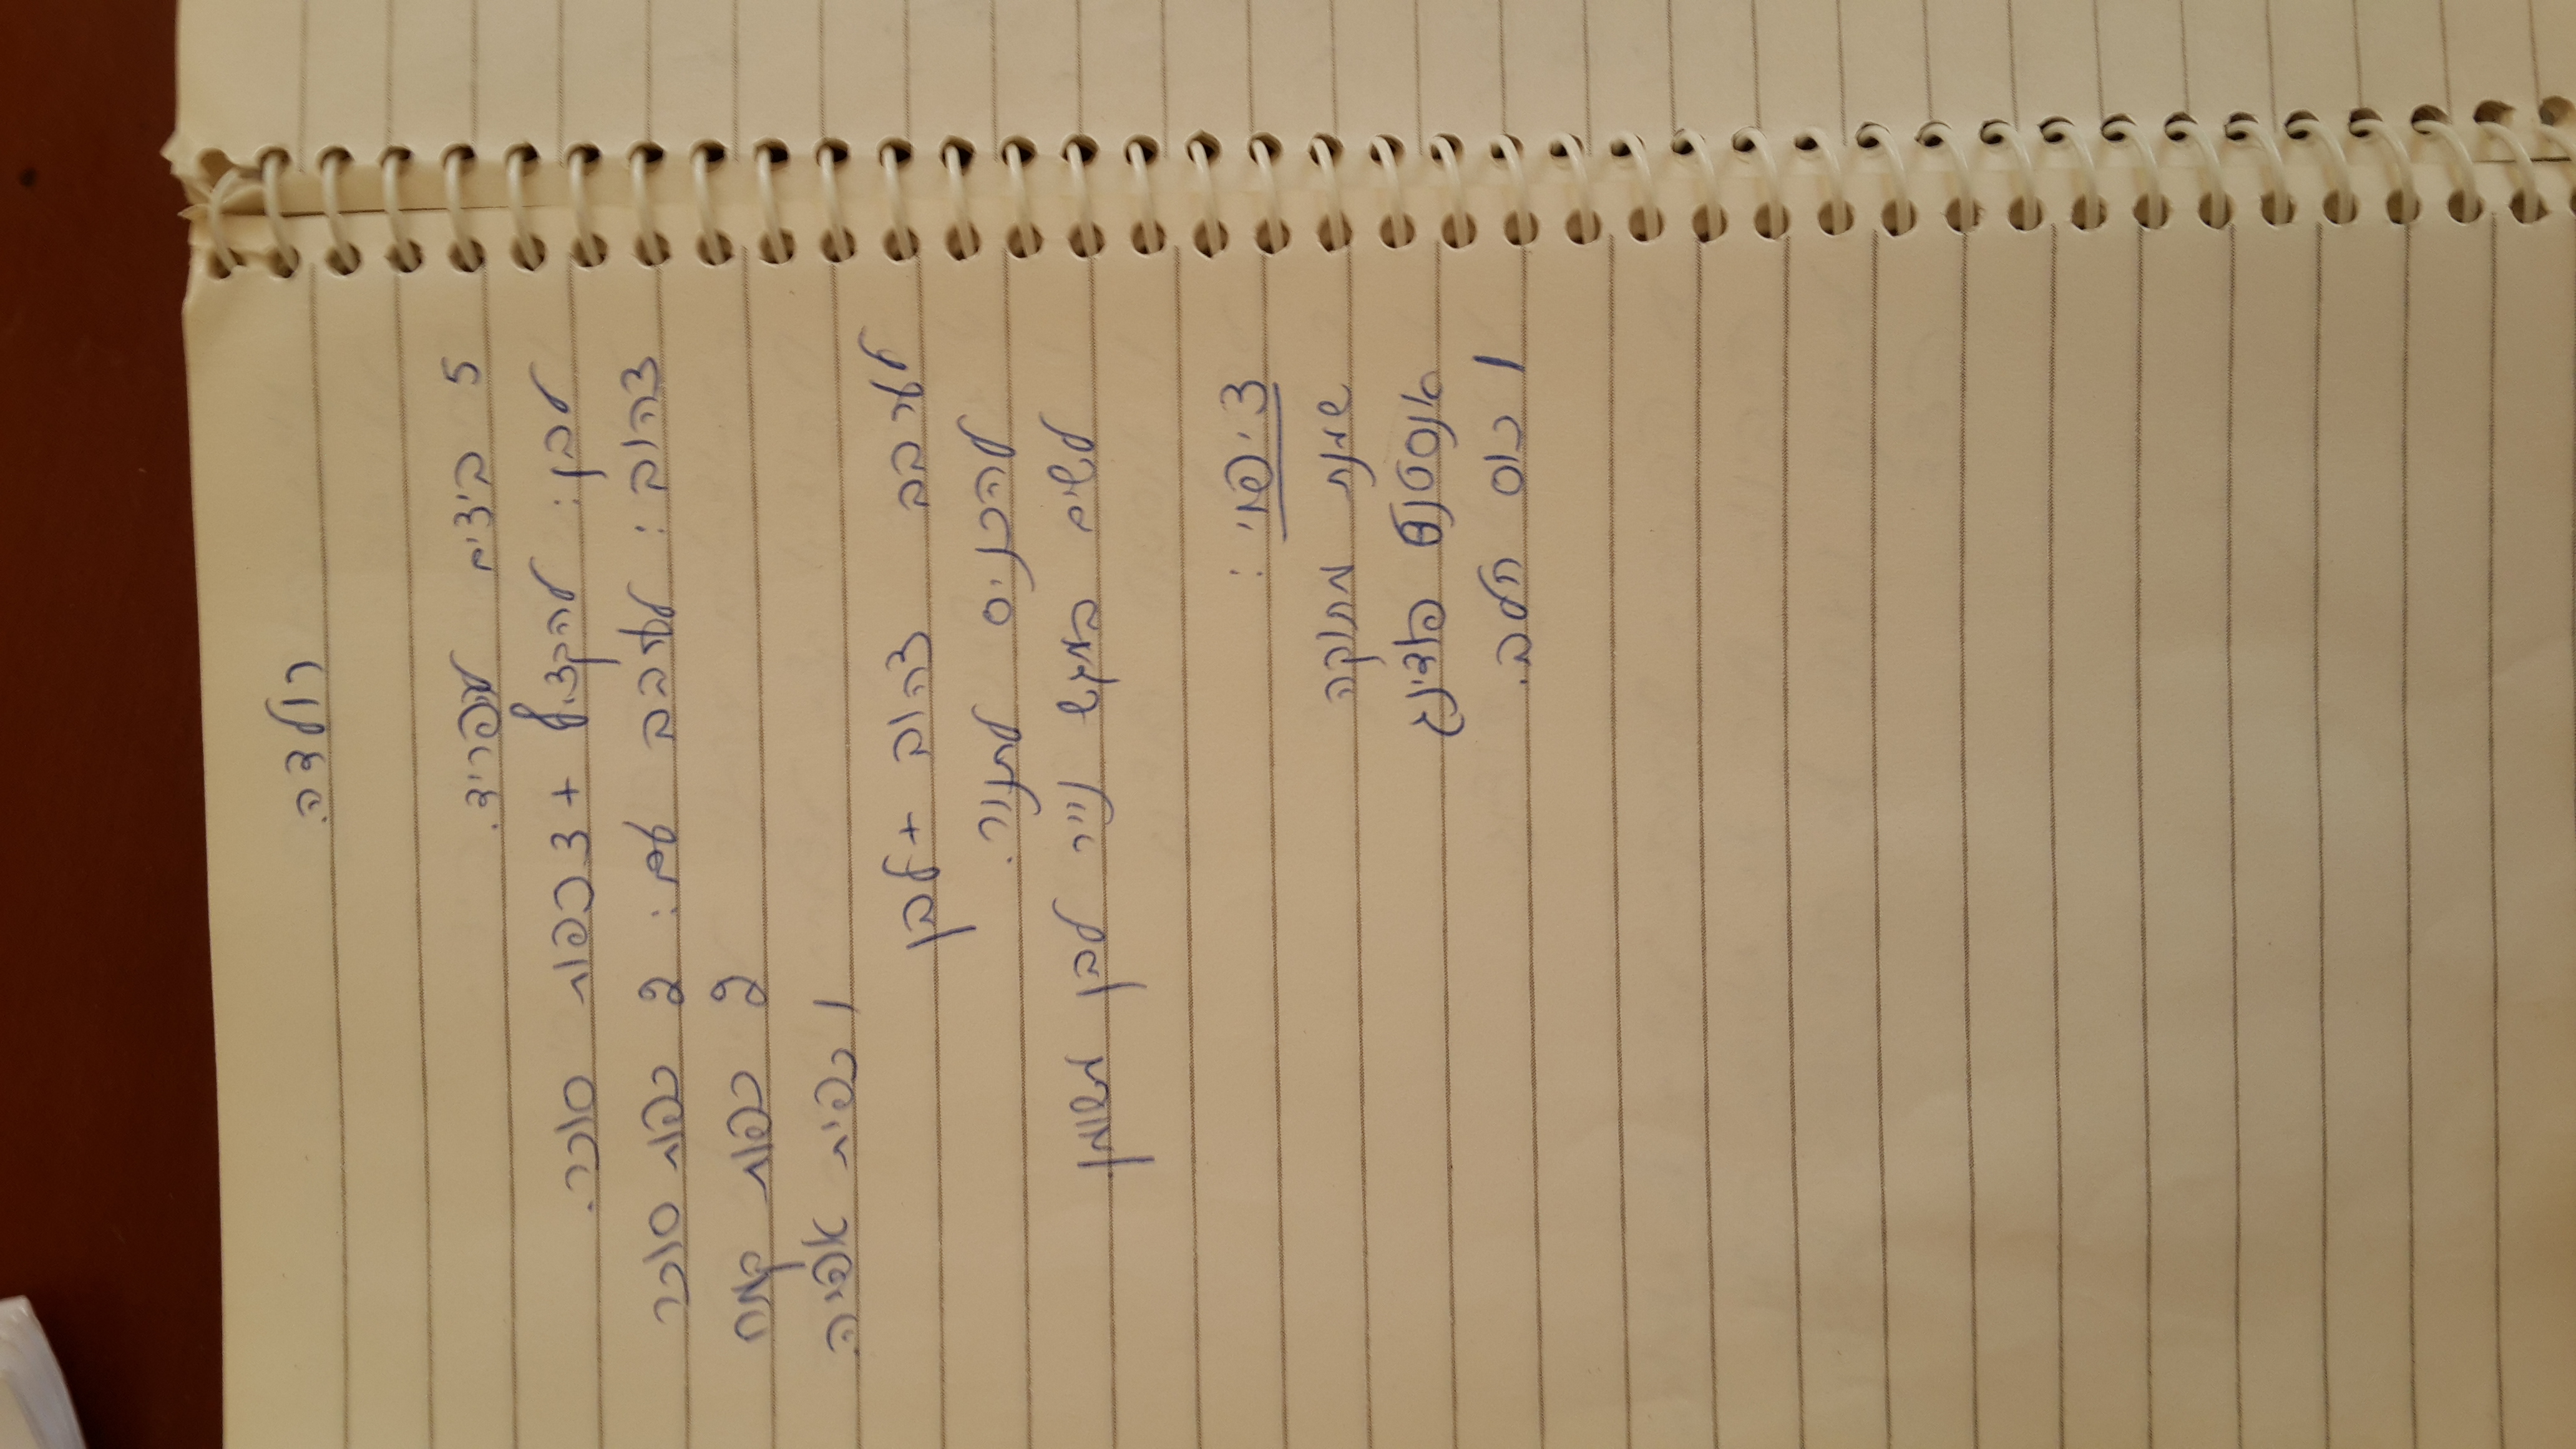 רולדה.
5 ביצים להפריד.
לבן: להקציף + 3 כפות סוכר.
צהוב: לערבב עם: 2 כפות סוכר
2 כפות קמח
1 כפית אפיה.
לערבב צהוב + לבן
להכניס לתנור.
לשים במגש נייר לבן משומן.
ציפוי:
שמנת מתוקה
אנסטנט פודינג
1 כוס חלב.